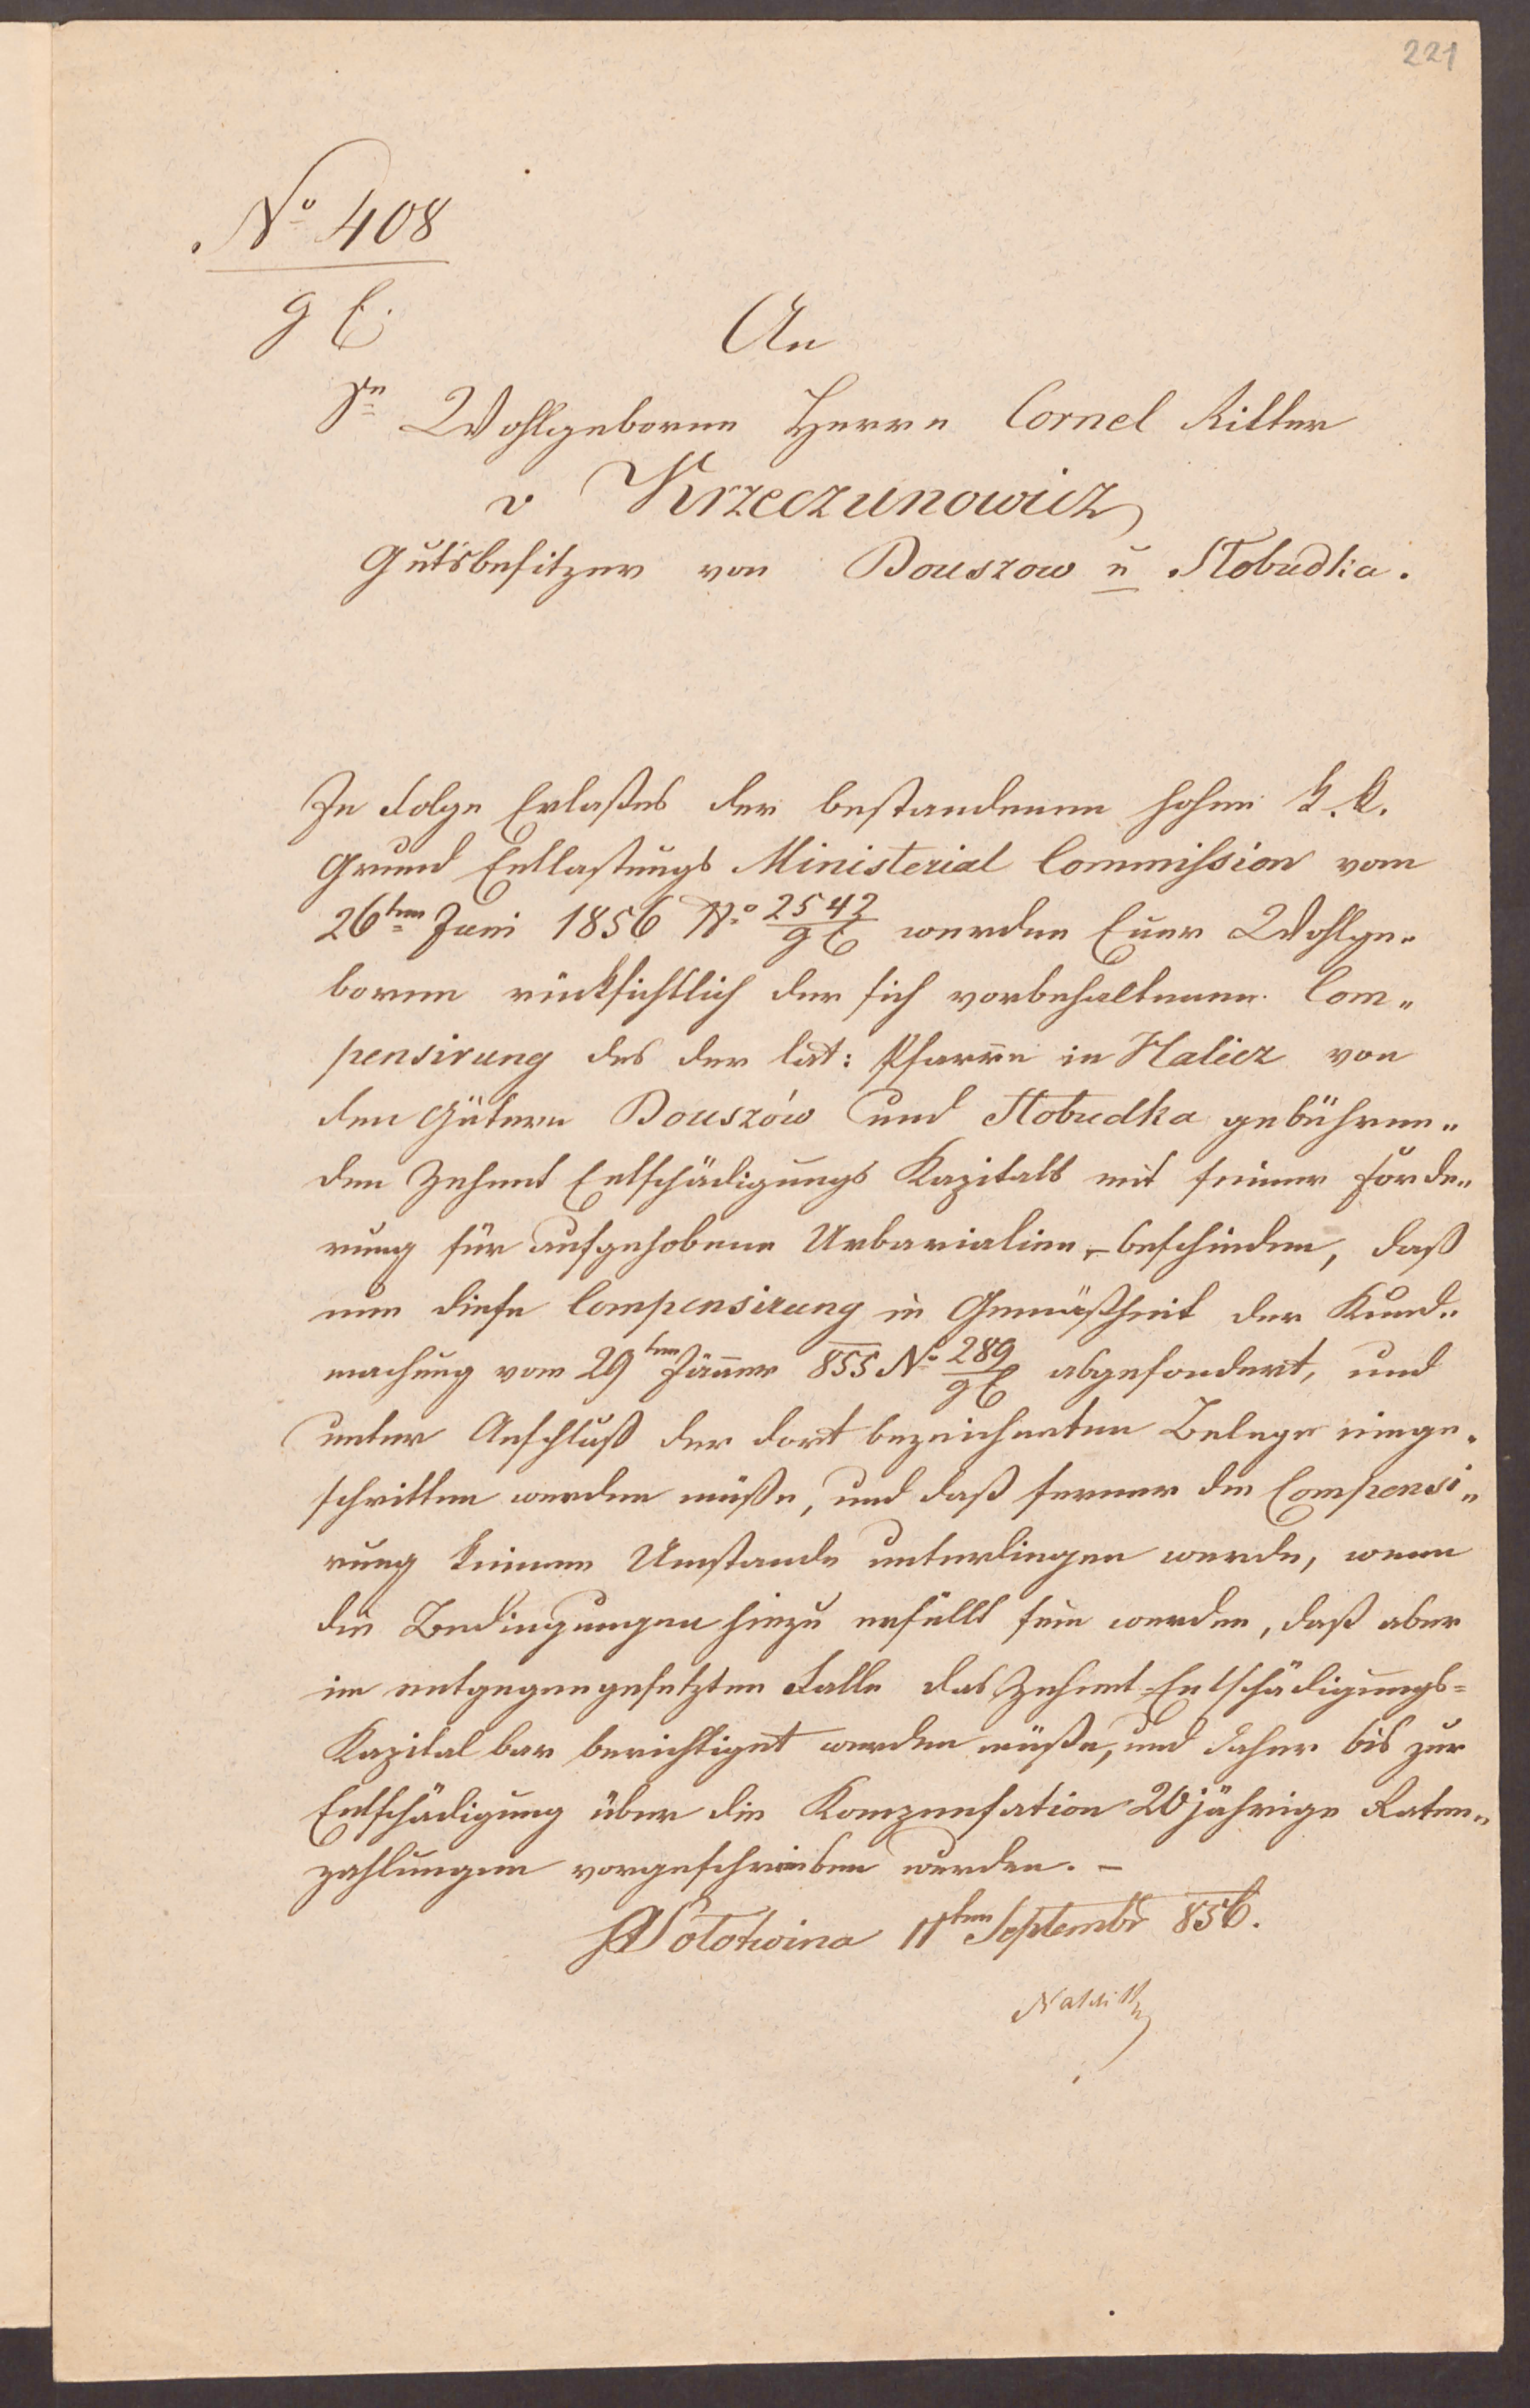 221
No 408
g E
An
Sn Wohlgeboren Herrn Cornel Ritter
v Krzeczunowicz
Gutsbesitzer von Bouszow u Słobudka.
In Folge Erlaßes der bestandenen hohen k. k.
Grund Entlastungs Ministerial Commission vom
26ten Juni 1856 No 2542/gE werden Euer Wohlge„
boren rücksichtlich der sich vorbehaltenen Com„
pensirung des der lat: Pfarre in Halicz von
den Gütern Bouszów und Słobudka gebühren„
den Zehent Entschädigungs Kapitals mit seiner Forde„
rung für aufgehobene Urbarialien, – beschieden, daß
nun diese Compensirung in Gemäßheit der Kund„
machung vom 29ten Jänner 855 No 289/gE abgesondert, und
unter Anschluß der dort bezeichneten Belege einge„
schritten werden müße, und daß ferner die Compensi„
rung keinem Umstande unterliegen werde, wenn
die Bedingungen hiezu erfüllt sein werden, daß aber
im entgegengesetzten Falle das Zehent-Entschädigungs=
Kapital bar berichtiget werden müße, und daher bis zur
Entschädigung über die Kompensation 20jährige Raten„
zahlungen vorgeschrieben werden. –
Sołotwina 11ten Septembr 856.